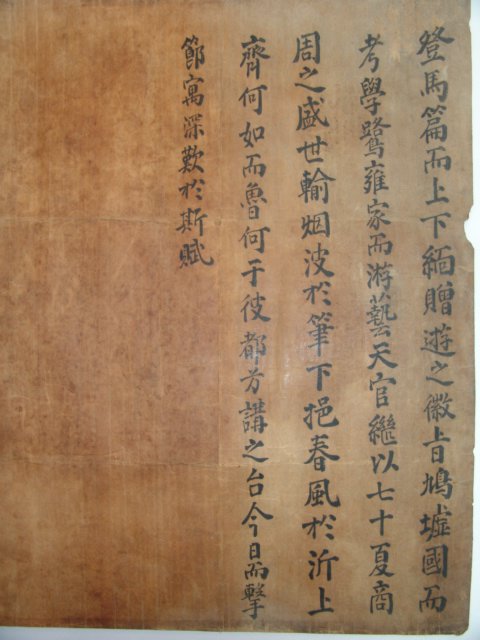 登馬篇而上下緬贈遊之徽旨鳩墟國而
考學鷺雍家而游藝天官繼以七十夏商
周之盛世輸烟波於筆下挹春風於沂上
齊何如而魯何于彼都芳講之台今日而擊
節寓深歎於斯賦